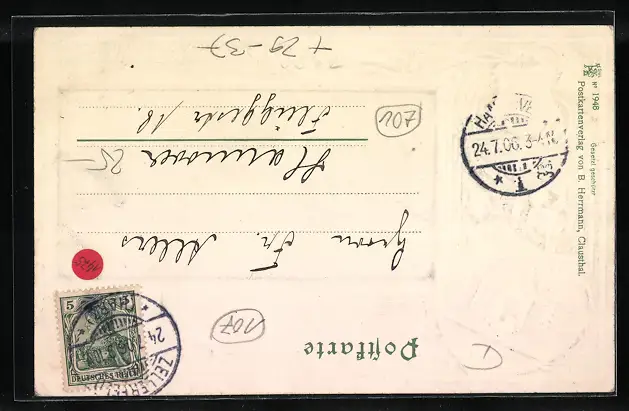 Postkarte
Herrn Fr. Allers
Hannover
Flüggestr 18.
25-
107
107
+ 29-37
HANNOVER
24.7.06. 3-4N
* 1. *
ZELLERFELD
(HARZ)
24
5
DEUTSCHES REICH
Gesetzl geschützt
Nº 1948
Postkartenverlag von B. Herrmann, Clausthal.